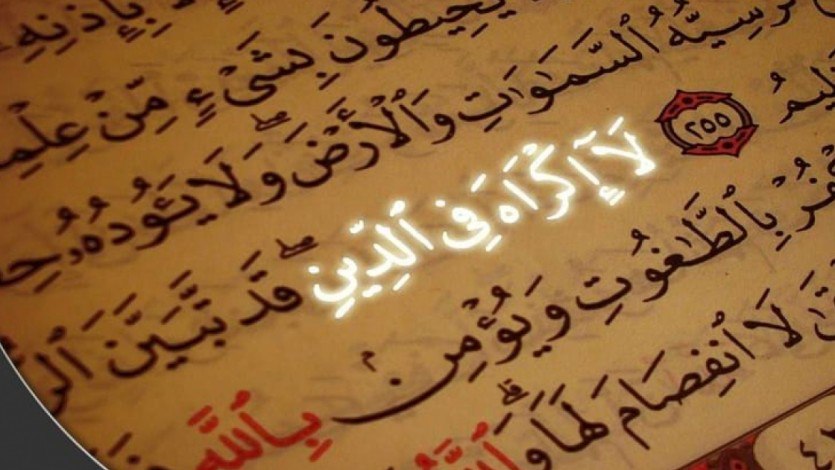 يُحِيطُونَ بِشَىْءٍ مِّنْ عِلْمِ
كُرْسِيُّهُ ٱلسَّمَٰوَٰتِ وَٱلْأَرْضَ ۖ وَلَا يَـُٔودُهُۥ حِ
٢٥٥ لَآ إِكْرَاهَ فِى ٱلدِّينِ ۖ قَد تَّبَيَّنَ
بِٱلطَّٰغُوتِ وَيُؤْمِنۢ بِٱللَّهِ
لَا ٱنفِصَامَ لَهَا ۗ وَٱللَّهُ